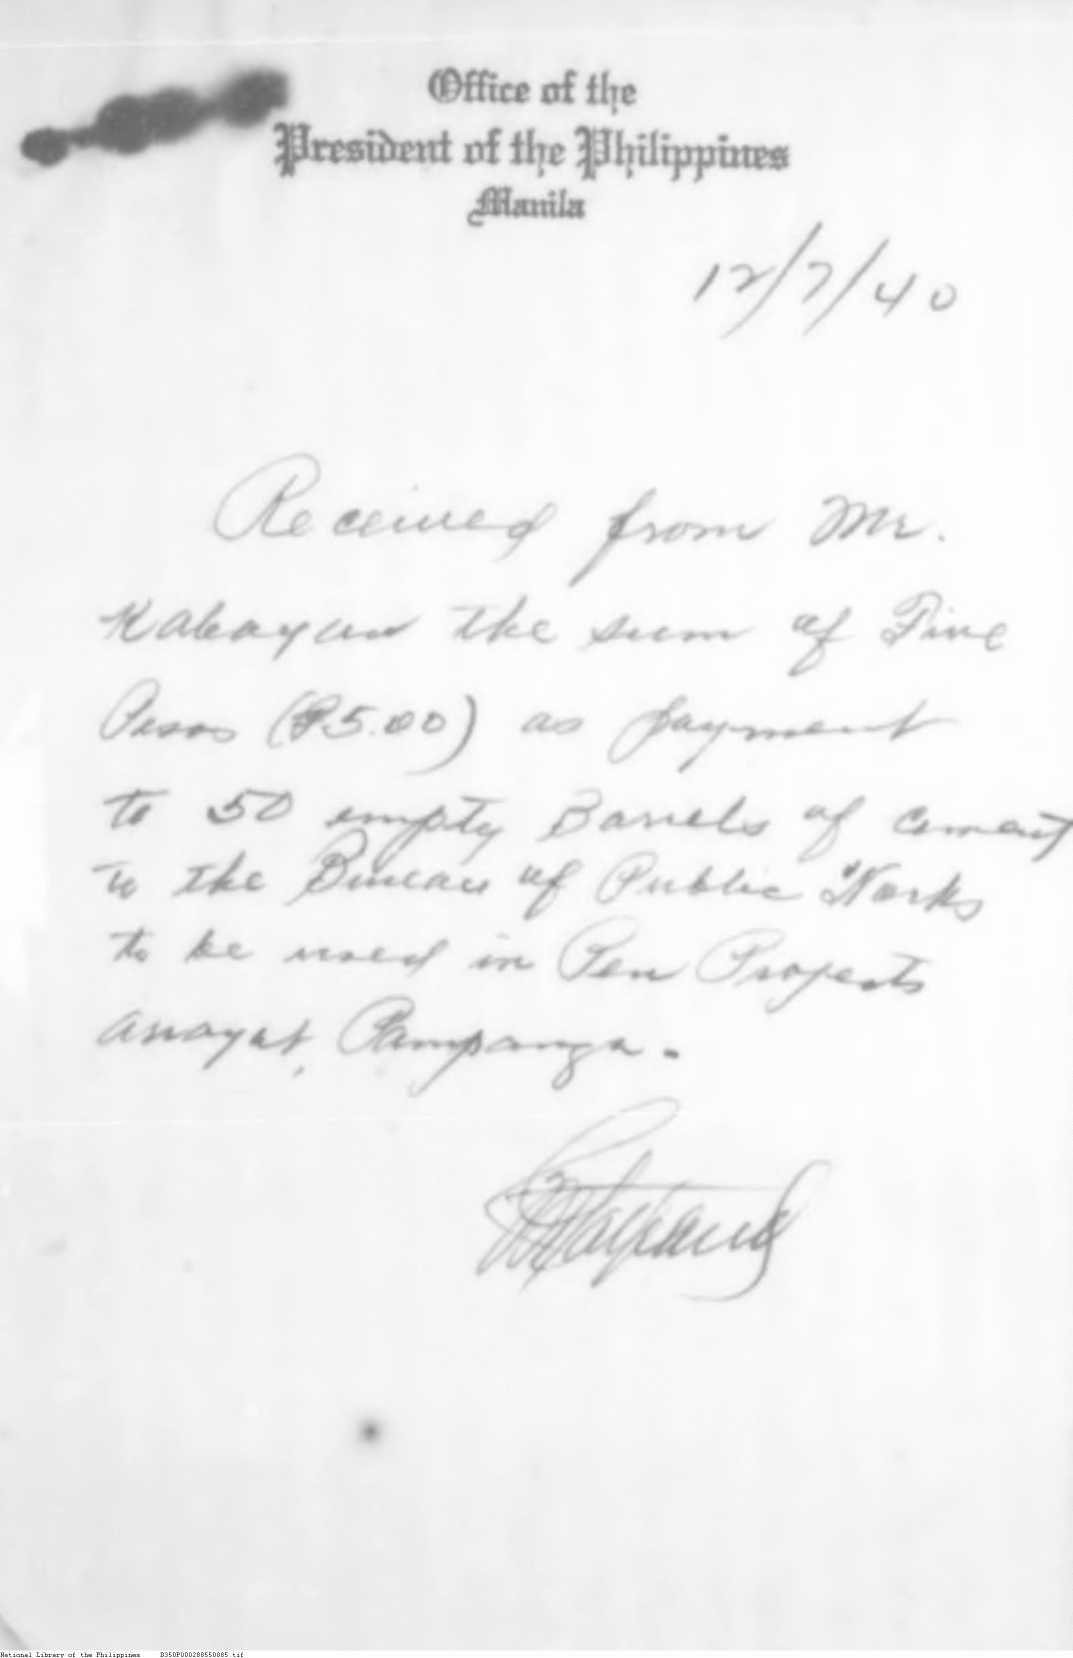 Office of the
President of the Philippines
Manila
12/7/40
Received from Mr.
Kabayan the sum of Five
Pesos (₱5.00) as payment
to 50 empty Barrels of cement
to the Bureau of Public Works
to be used in Pen Projects
Arrayat, Pampanga.
National Library of the Philippines D350P000288550085.tif